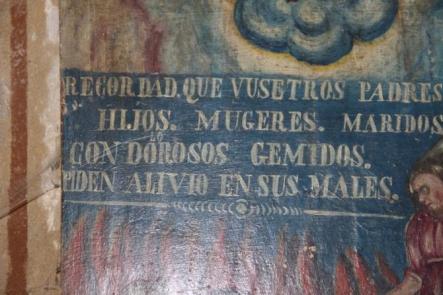 RECORDAD, QUE VUSETROS PADRES
HIJOS. MUGERES. MARIDOS
CON DOROSOS GEMIDOS.
PIDEN ALIVIO EN SUS MALES.